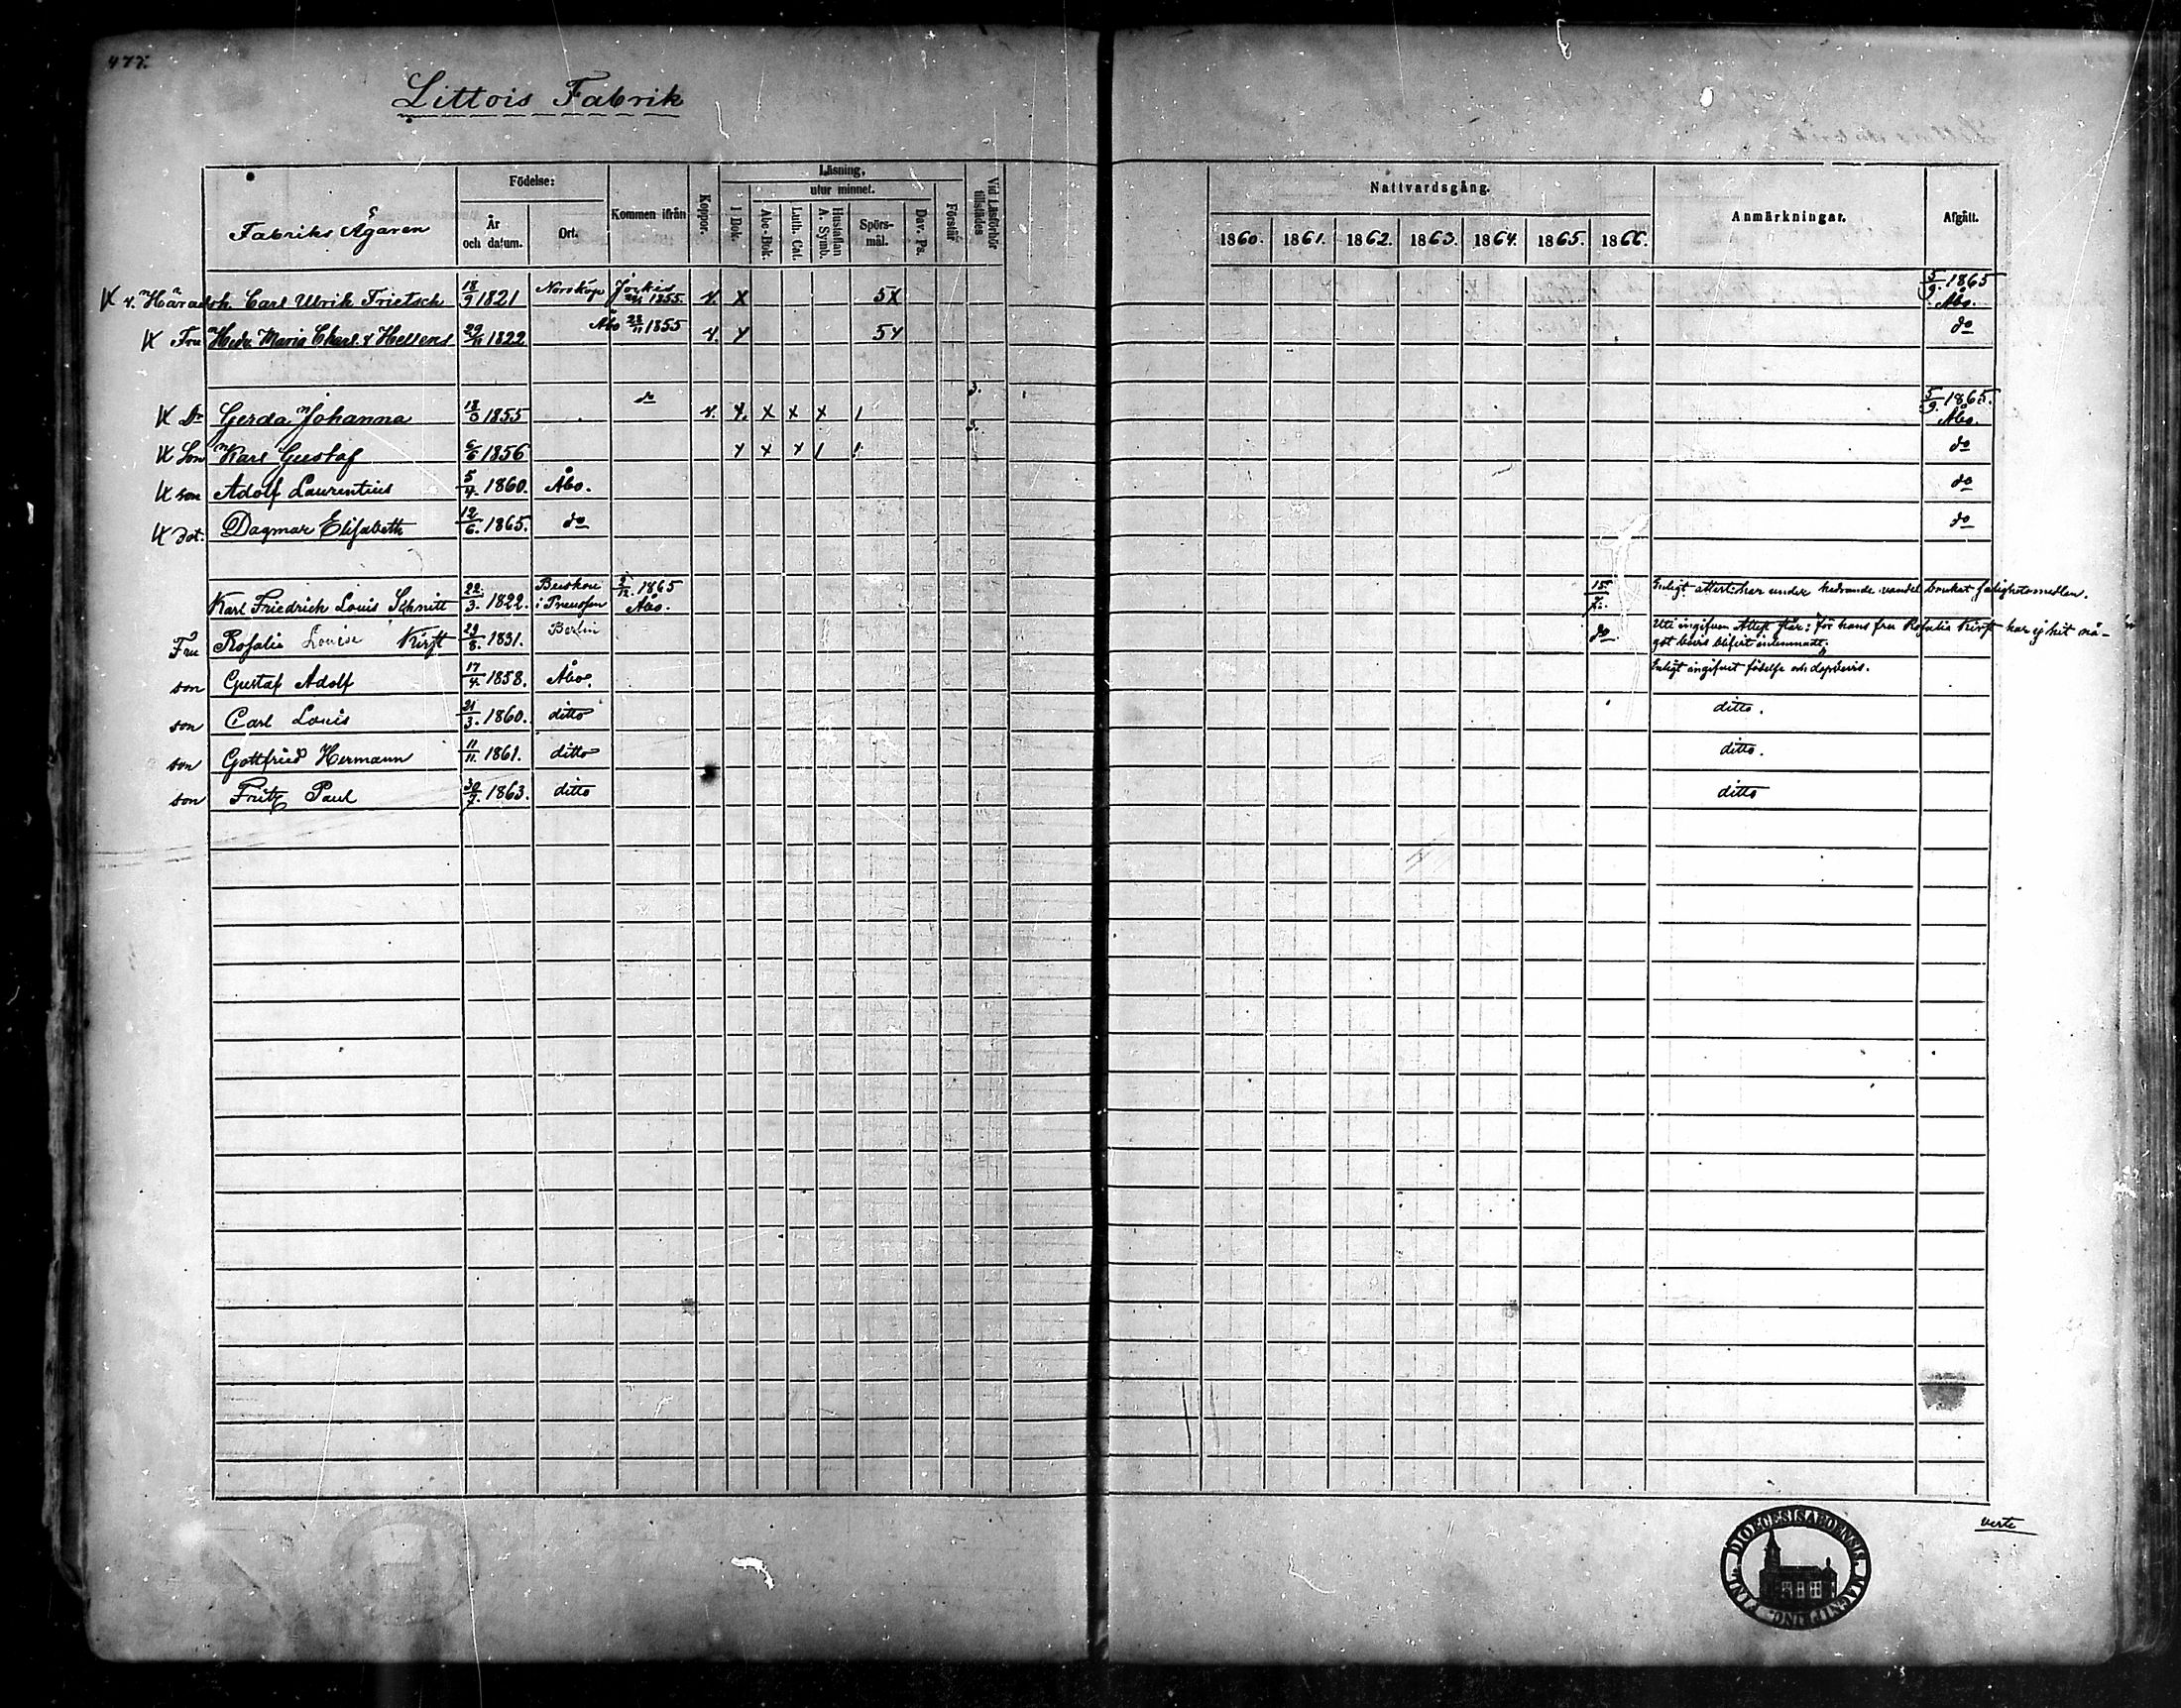 477.
Littois Fabrik
Födelse:
Läsning,
utur minnet.
Fabriks Ägaren
År och datum.
Ort.
Kommen ifrån
Koppor.
I Bok.
Abc-Bok.
Luth. Cat.
Hustaflan A. Symb.
Spörs-mål.
Dav. Ps.
Förstår
Vid Läsförhör tillstädes
Nattvardsgång.
1860. 1861. 1862. 1863. 1864. 1865. 1866.
Anmärkningar.
Afgått.
v. Häradsh. Carl Ulrik Frietsch 18/9 1821 Norrköp Jockis 1855. v. X 5X 5/9 1865 Åbo.
Fru Hedv. Maria Charl. Hellens 29/11 1822 Åbo 1855 v. X 5X do
Dr Gerda Johanna 18/3 1855 do v. X X X X / 3. 5/9 1865. Åbo.
Son Karl Gustaf 6/6 1856 X X X / / 3. do
son Adolf Laurentius 5/4. 1860. Åbo. do
dot. Dagmar Elisabeth 12/6. 1865. do do
Karl Friedrich Louis Schmitt 22/3. 1822. Beeskou i Preussen 2/12. 1865 Åbo. Enligt attest: har under hedrande vandel brukat salighetsmedlen.
Fru Rosalie Louise Kirst 23/8. 1831. Berlin do Uti ingifven Attest står: för hans fru Rosalie Kirst har ej hit nå-
got bevis blifvit inlemnadt.
son Gustaf Adolf 17/4. 1858. Åbo. Enligt ingifvet födelse och dopbevis.
son Carl Louis 21/3. 1860. ditto ditto.
son Gottfried Hermann 11/11. 1861. ditto ditto.
son Fritz Paul 30/7. 1863. ditto ditto
verte
DIOECESIS ABOENSIS. MAGNI PRINC. FINL.